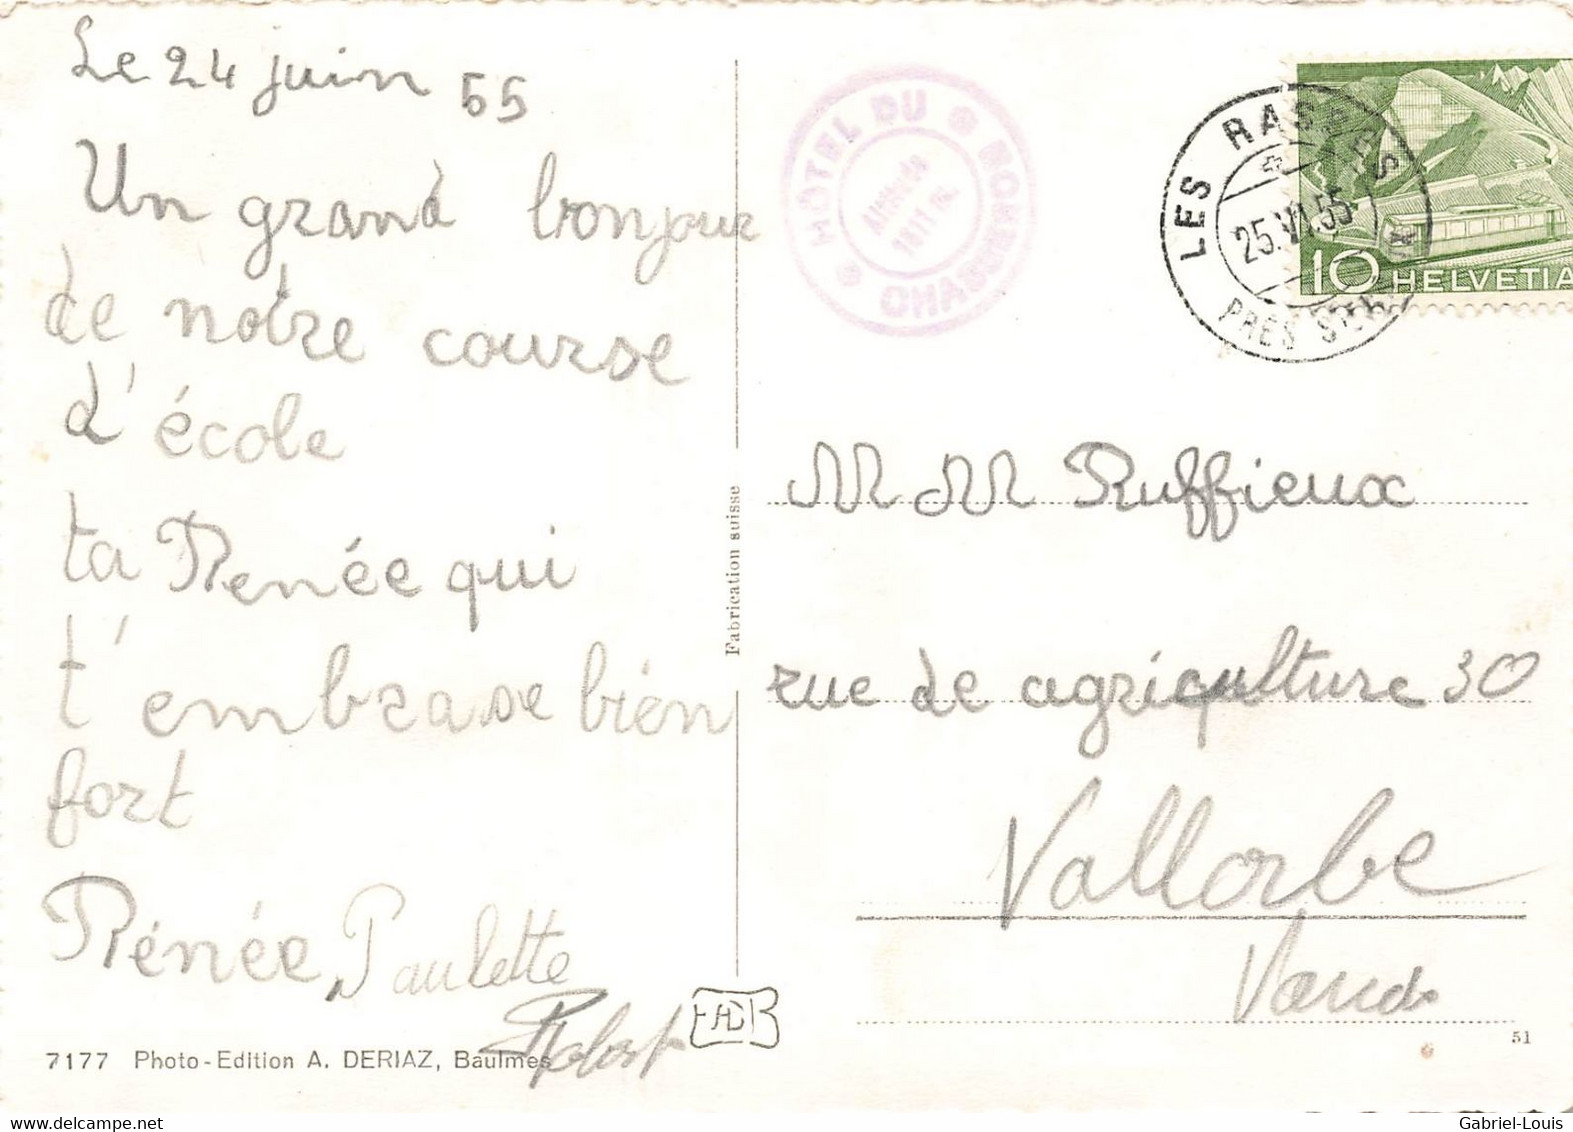 Le 24 juin 55
Un grand bonjour
de notre course
d'école
ta Renée qui
t'embrase bien
fort
Rénée, Paulette
Robert
7177 Photo-Edition A. DERIAZ, Baulmes
Fabrication suisse
HÔTEL DU CHASSERON
Altitude
1611 m.
LES RASSES
25.VI.55
PRÈS STE
10 HELVETIA
M M Ruffieux
rue de agriculture 30
Vallorbe
Vaud
51
http://www.delcampe.net
Gabriel-Louis